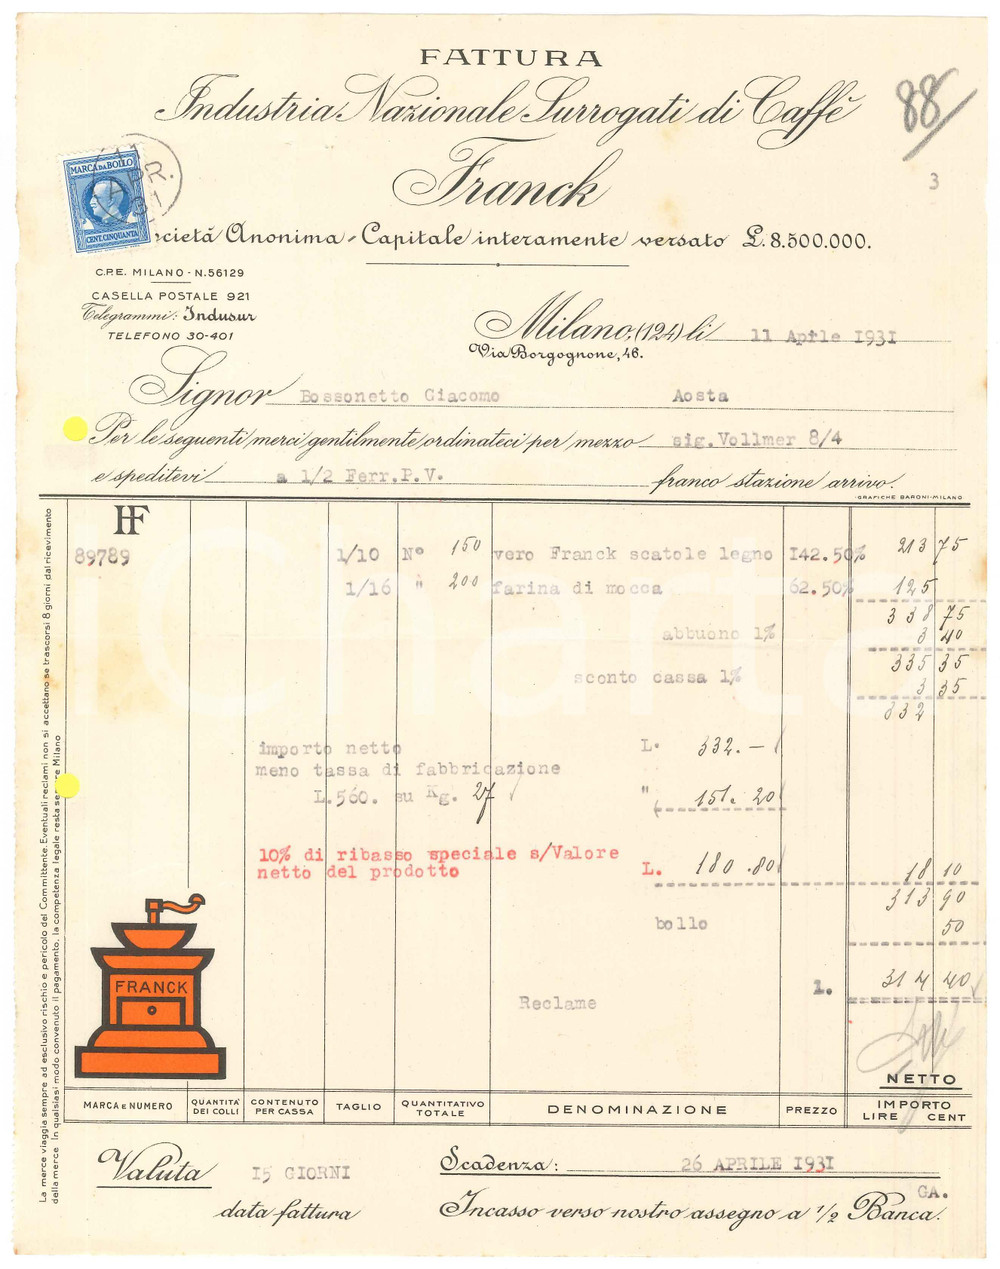 FATTURA
Industria Nazionale Surrogati di Caffè
88
Franck
3
MARCA DA BOLLO
CENT. CINQUANTA
11 APR. 31
cietà Anonima - Capitale interamente versato L. 8.500.000.
C.P.E. MILANO - N. 56129
CASELLA POSTALE 921
Telegrammi: Indusur
TELEFONO 30-401
Milano, (124) li 11 Aprile 1931
Via Borgognone, 46.
Signor Bossonetto Giacomo Aosta
Per le seguenti merci gentilmente ordinateci per mezzo sig. Vollmer 8/4
e speditevi a 1/2 Ferr. P. V. franco stazione arrivo.
GRAFICHE BARONI - MILANO
HF
89789 1/10 N° 150 vero Franck scatole legno I42.50% 213 75
1/16 " 200 farina di mocca 62.50% 125
338 75
abbuono 1% 3 40
335 35
sconto cassa 1% 3 35
332
importo netto L. 332.—
meno tassa di fabbricazione
L.560. su Kg. 27 " 151. 20
10% di ribasso speciale s/Valore
netto del prodotto L. 180.80 18 10
313 90
bollo 50
l. 314 40
Reclame
FRANCK
NETTO
MARCA E NUMERO QUANTITÀ DEI COLLI CONTENUTO PER CASSA TAGLIO QUANTITATIVO TOTALE DENOMINAZIONE PREZZO IMPORTO LIRE CENT
Valuta I5 GIORNI
data fattura
Scadenza: 26 APRILE I931
GA.
Incasso verso nostro assegno a 1/2 Banca.
La merce viaggia sempre ad esclusivo rischio e pericolo del Committente. Eventuali reclami non si accettano se trascorsi 8 giorni dal ricevimento
della merce. In qualsiasi modo convenuto il pagamento, la competenza legale resta sempre Milano